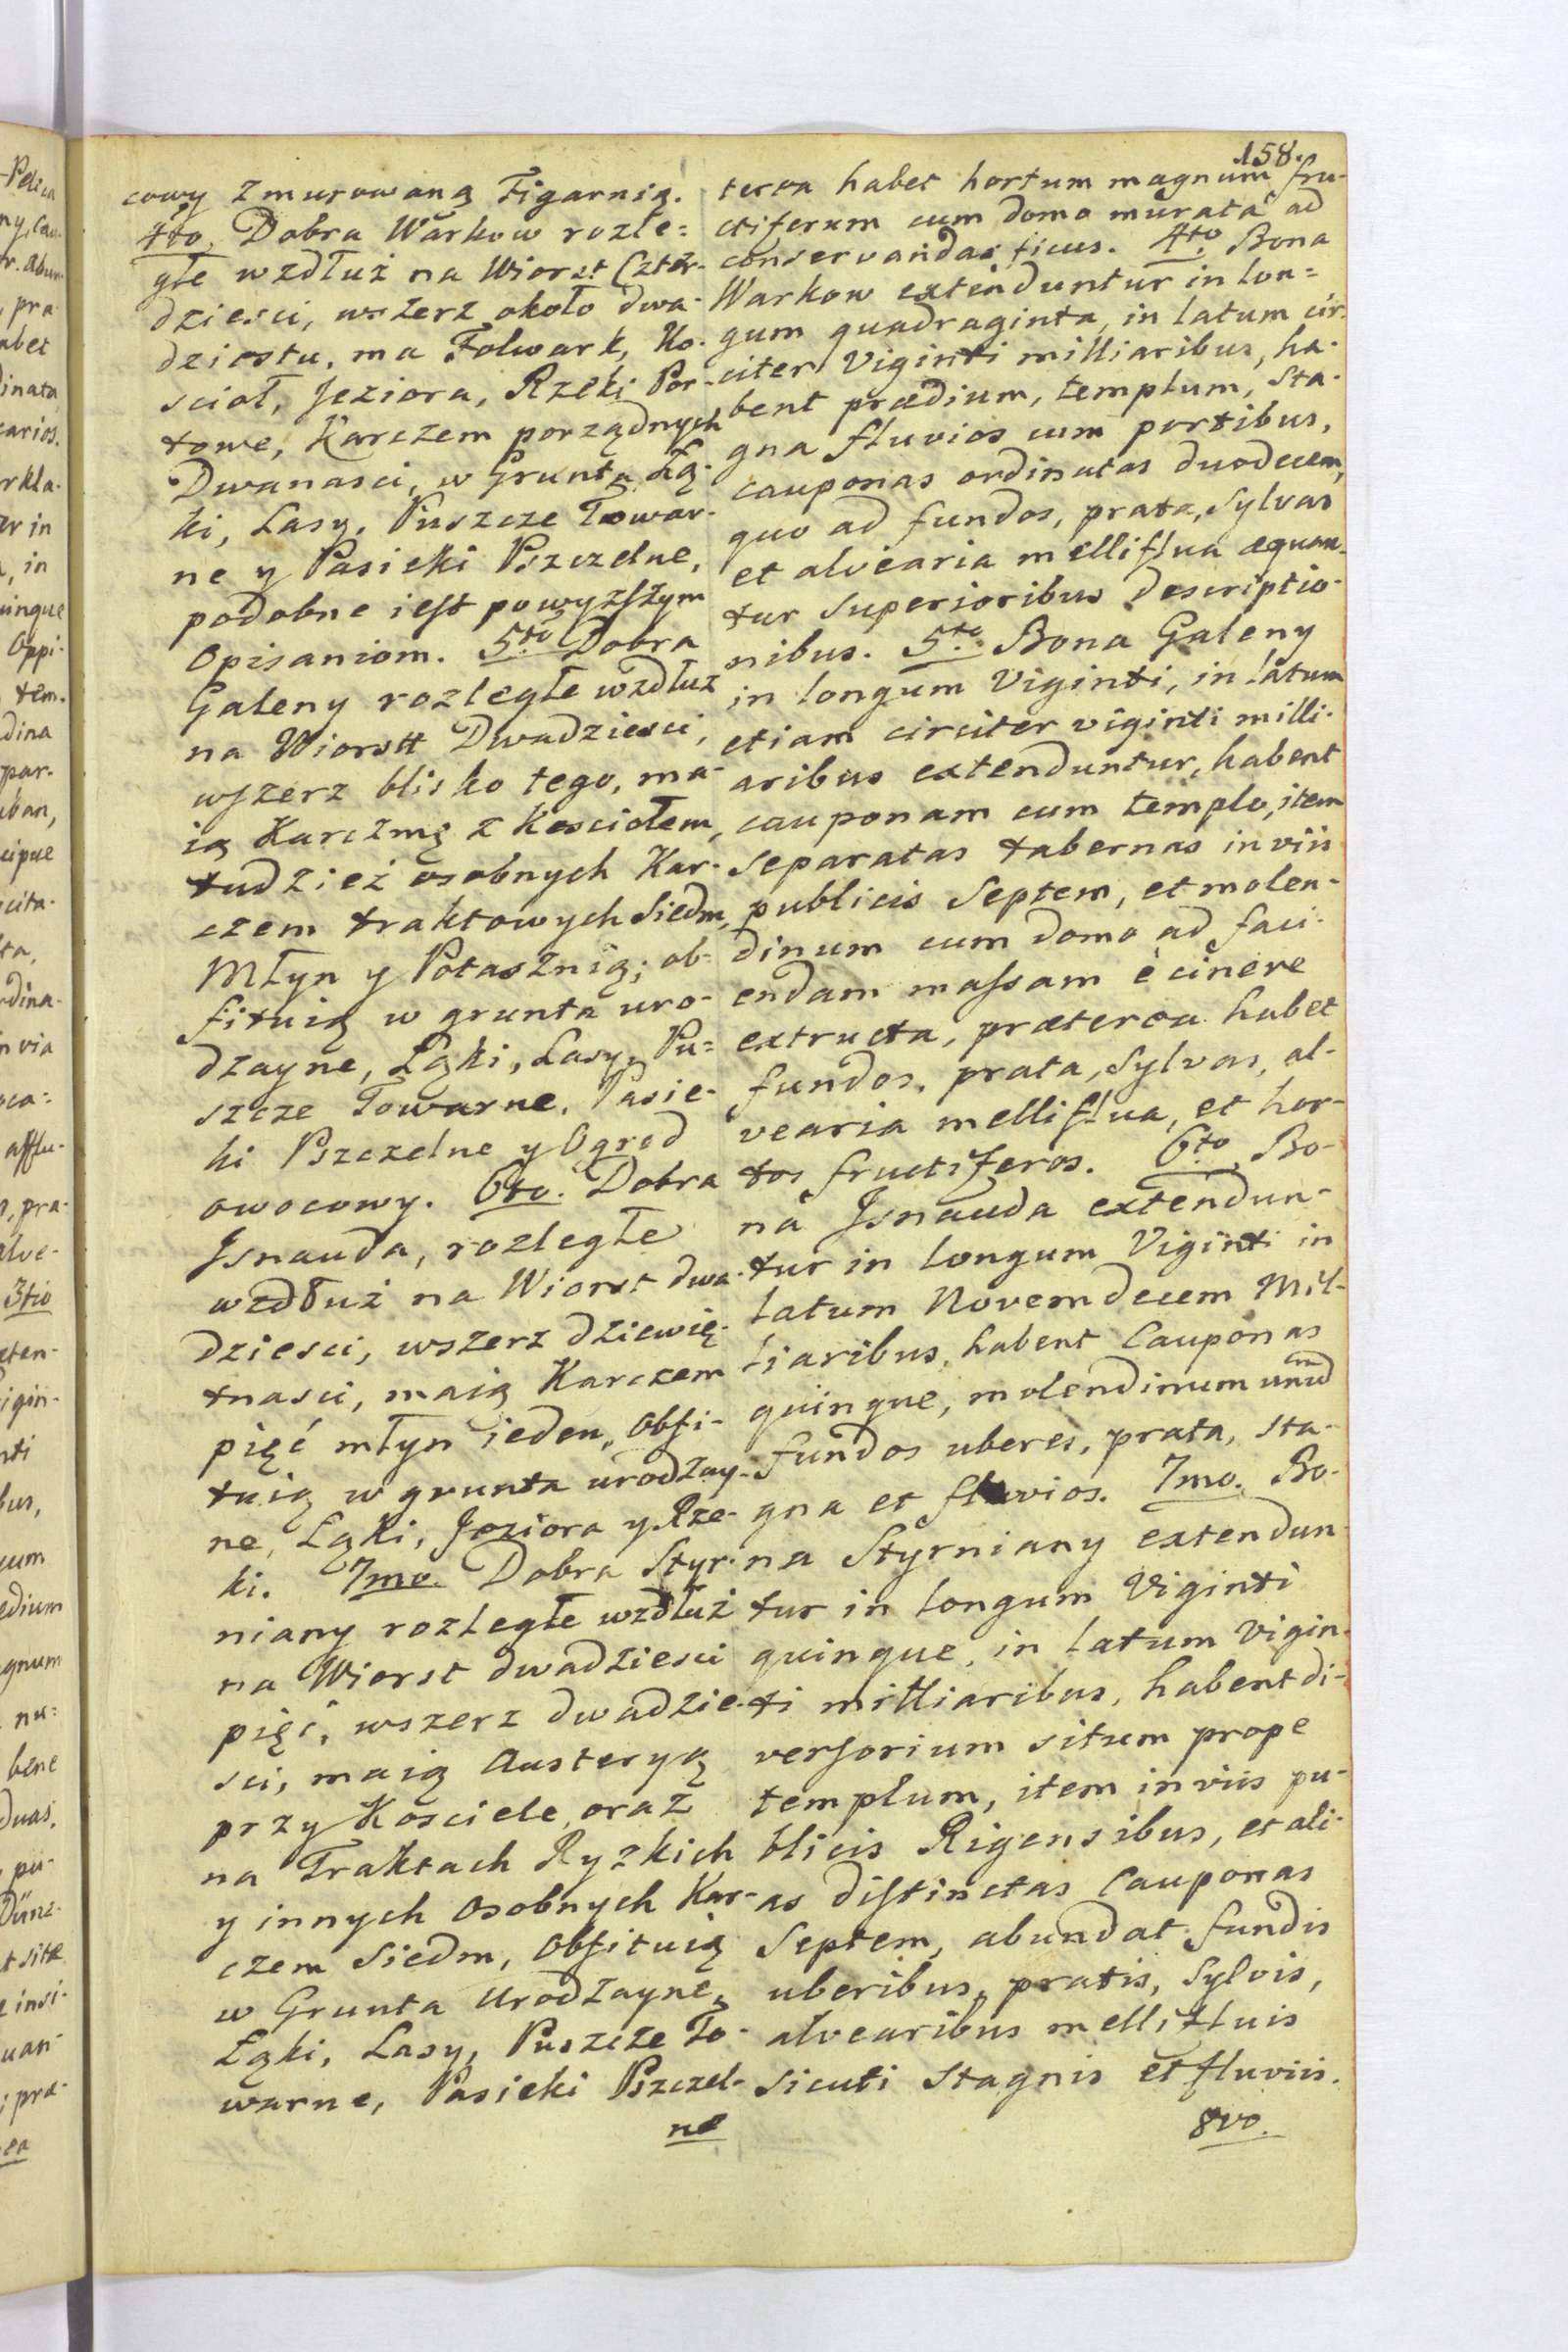 158.
cowy z murowaną Figarnią.
4to. Dobra Warkow rozle=
głe wzdłuż na Wiorst Czter-
dziesci, wszerz około dwa-
dziestu, ma Folwark, Ko-
scioł, Jeziora, Rzeki Por-
towe, Karczem porządnych
Dwanasci, w Grunta Łą-
ki, Lasy, Puszcze Towar-
ne y Pasieki Pszczelne,
podobne iest powyzszym
Opisaniom. 5to Dobra
Galeny rozległe wzdłuz
na Wiorstt Dwadziesci,
wszerz blisko tego, ma-
ią Karczmę z Kosciołem,
tudzież osobnych Kar-
czem traktowych Siedm,
Młyn y Potasznią; ob-
fituią w grunta uro-
dzayne, Łąki, Lasy, Pu=
szcze Towarne, Pasie-
ki Pszczelne y Ogrod
owocowy. 6to. Dobra
Jsnauda, rozległe
wzdłuż na Wiorst dwa-
dziesci, wszerz dziewię-
tnasci, maią Karczem
pięć młyn ieden, Obfi-
tuią w grunta urodzay-
ne, Łąki, Jeziora y Rze-
ki. 7mo. Dobra Styr-
niany rozległe wzdłuż
na Wiorst dwadziesci
pięć, wszerz dwadzie-
sci, maią Austeryą
przy Kosciele, oraz
na Traktach Ryzkich
y innych Osobnych Kar-
czem Siedm, Obfituią
w Grunta Urodzayne,
Łąki, Lasy, Puszcze To-
warne, Pasieki Pszczel-
ne
terea habet hortum magnum fru-
ctiferum cum domo murata ad
conservandas ficus. 4to. Bona
Warkow extenduntur in lon=
gum quadraginta, in latum cir-
citer Viginti milliaribus, ha-
bent prædium, templum, sta-
gna fluvios cum portibus,
cauponas ordinatas duodecem,
quo ad fundos, prata, sylvas
et alvearia melliflua æquan-
tur superioribus descriptio-
nibus. 5to. Bona Galeny
in longum Viginti, in latum
etiam circiter viginti milli-
aribus extenduntur, habent
cauponam cum templo, item
separatas tabernas in viis
publicis Septem, et molen-
dinum cum domo ad faci-
endam massam è cinere
extructa, præterea habet
fundos, prata, sylvas, al-
vearia melliflua, et hor-
tos fructiferos. 6to. Bo-
na Jsnauda extendun-
tur in longum Viginti in
latum Novemdecem Mil-
liaribus, habent Cauponas
quinque, molendinum unum
fundos uberes, prata, sta-
gna et fluvios. 7mo. Bo-
na Styrniany extendun-
tur in longum Viginti
quinque, in latum Vigin-
ti milliaribus, habent di-
versorium situm prope
templum, item in viis pu-
blicis Rigensibus, et ali-
as distinctas Cauponas
Septem, abundat fundis
uberibus, pratis, Sylvis,
alvearibus mellifluis
sicuti stagnis et fluviis.
8vo.